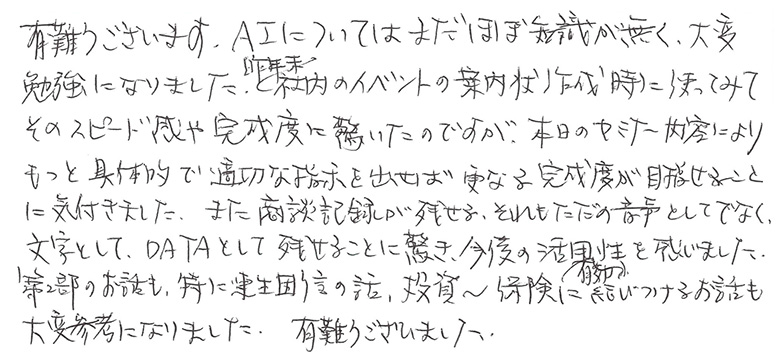 有難うございます。AIについてはまだほぼ知識が無く、大変
勉強になりました。昨年末に社内のイベントの案内状作成時に使ってみて
そのスピード感や完成度に驚いたのですが、本日のセミナー内容により
もっと具体的で適切な指示を出せば更なる完成度が目指せること
に気付きました。また商談記録が残せる、それもただの音声としてでなく、
文字として、DATAとして残せることに驚き、今後の活用性を感じました。
第2部のお話も、特に の話、投資〜保険に有効的に結びつけるお話も
大変参考になりました。有難うございました。